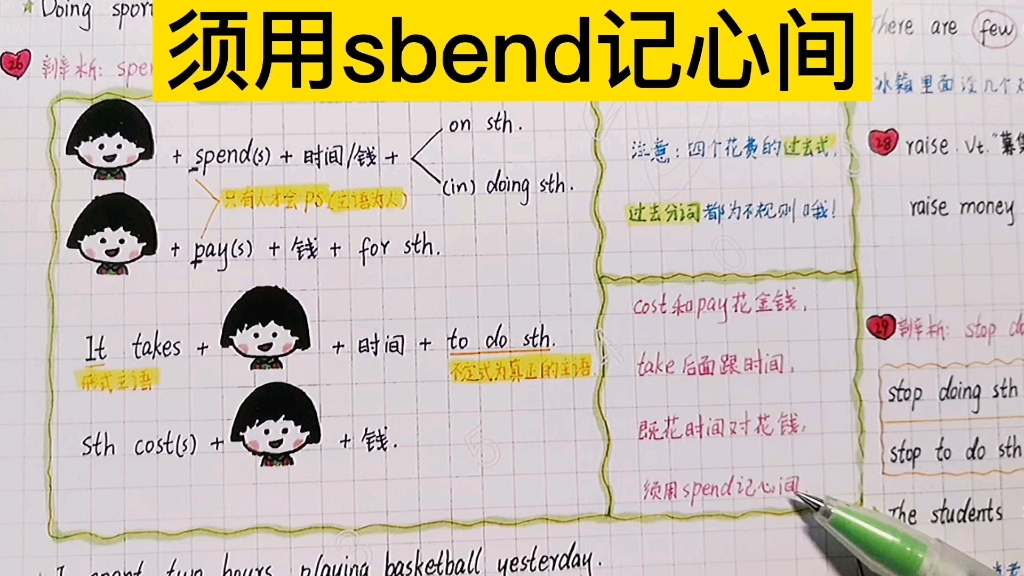 须用sbend记心间
Doing spor
There are few
26 辨析: spe
冰箱里面没几个
+ spend(s) + 时间/钱 +
on sth.
(in) doing sth.
只有人才会 ps (主语为人)
+ pay(s) + 钱 + for sth.
It takes +
+ 时间 + to do sth.
形式主语
不定式为真正的主语
Sth cost(s) +
+ 钱.
注意: 四个花费的过去式,
过去分词都为不规则哦!
cost和pay花金钱,
take后面跟时间,
既花时间又花钱,
须用spend记心间
28 raise. Vt. "募
raise money
29 辨析: stop d
stop doing sth
stop to do sth
The students
I spent two hours playing basketball yesterday.